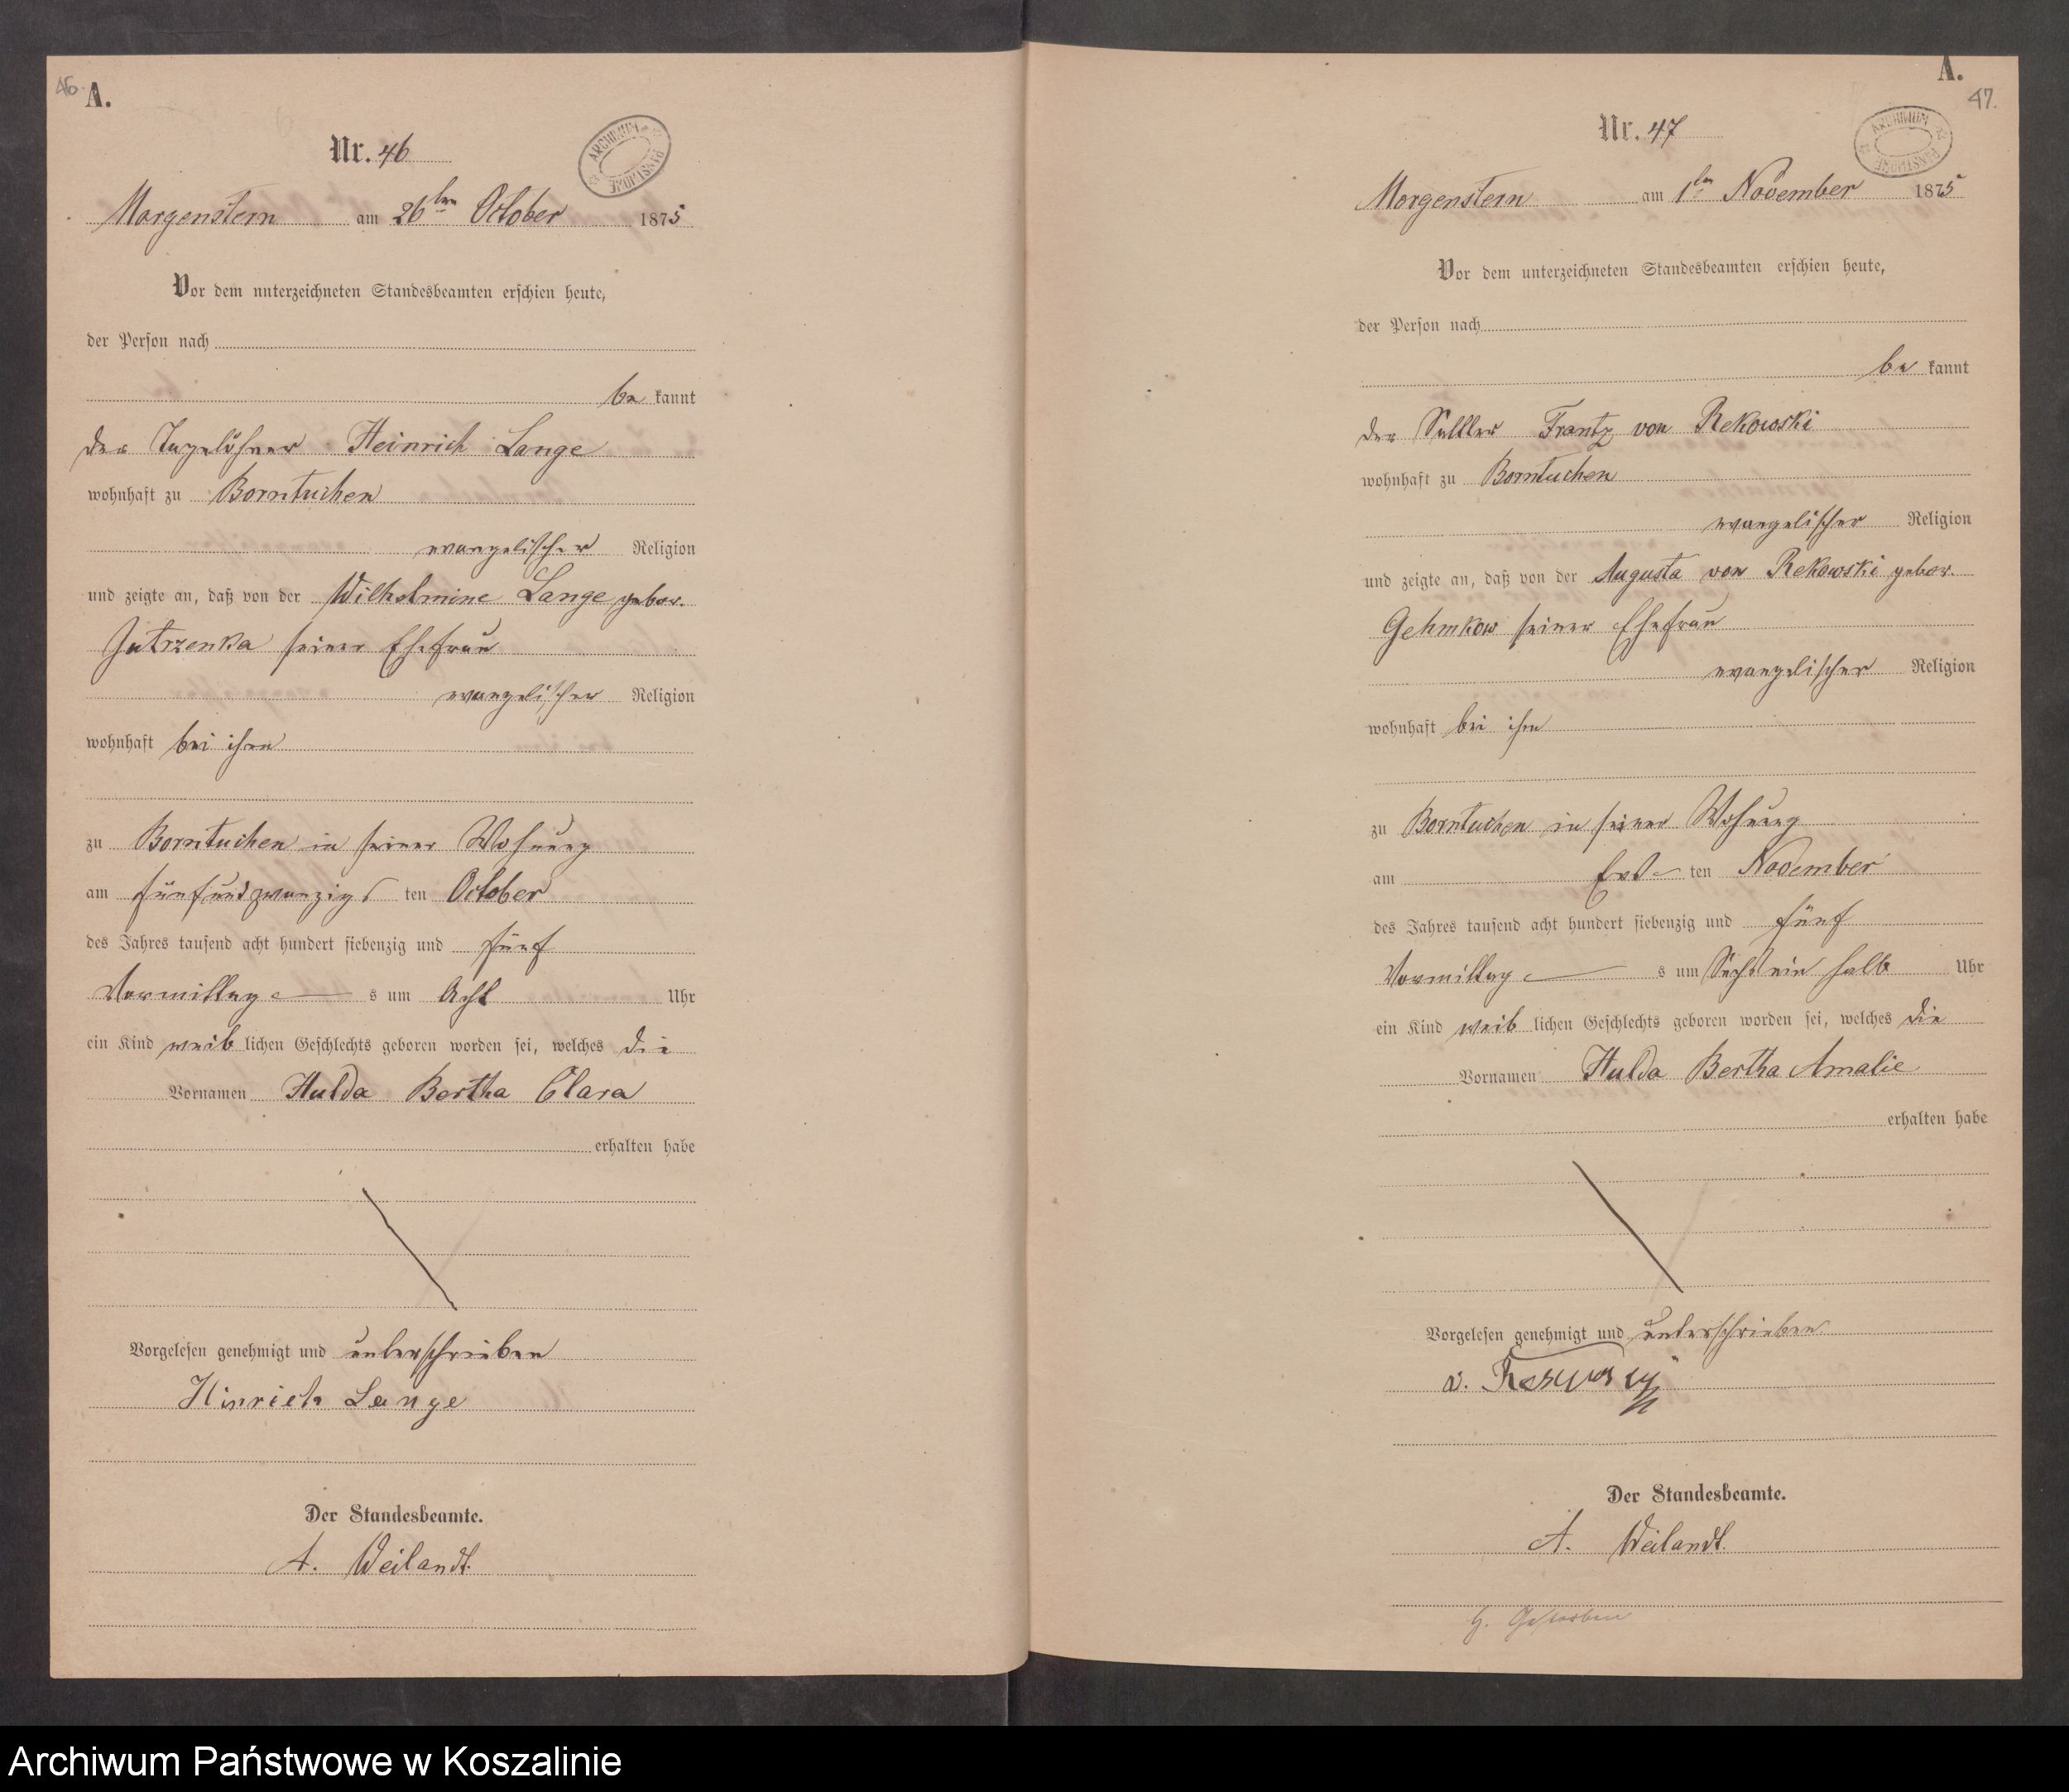 46.
A.
ARCHIWUM PAŃSTWOWE
Nr. 46
Morgenstern am 26ten October 1875
Vor dem unterzeichneten Standesbeamten erschien heute,
der Person nach
be kannt
der Tagelöhner Heinrich Lange
wohnhaft zu Borntuchen
evangelischer Religion
und zeigte an, daß von der Wilhelmine Lange gebor.
Jutrzenka seiner Ehefrau
evangelischer Religion
wohnhaft bei ihm
zu Borntuchen in seiner Wohnung
am fünfundzwanzigs ten October
des Jahres tausend acht hundert siebenzig und fünf
Vormittag s um Acht Uhr
ein Kind weib lichen Geschlechts geboren worden sei, welches die
Vornamen Hulda Bertha Clara
erhalten habe
Vorgelesen genehmigt und unterschrieben
Hinrich Lange
Der Standesbeamte.
A. Weilandt.
A.
47.
ARCHIWUM PAŃSTWOWE
Nr. 47
Morgenstern am 1ten November 1875
Vor dem unterzeichneten Standesbeamten erschien heute,
der Person nach
be kannt
der Sattler Frantz von Rekowski
wohnhaft zu Borntuchen
evangelischer Religion
und zeigte an, daß von der Augusta von Rekowski gebor.
Gehmkow seiner Ehefrau
evangelischer Religion
wohnhaft bei ihm
zu Borntuchen in seiner Wohnung
am Ers ten November
des Jahres tausend acht hundert siebenzig und fünf
Vormittag s um Sechs ein halb Uhr
ein Kind weib lichen Geschlechts geboren worden sei, welches die
Vornamen Hulda Bertha Amalie
erhalten habe
Vorgelesen genehmigt und unterschrieben
v.
Der Standesbeamte.
A. Weilandt.
Gestorben
Archiwum Państwowe w Koszalinie